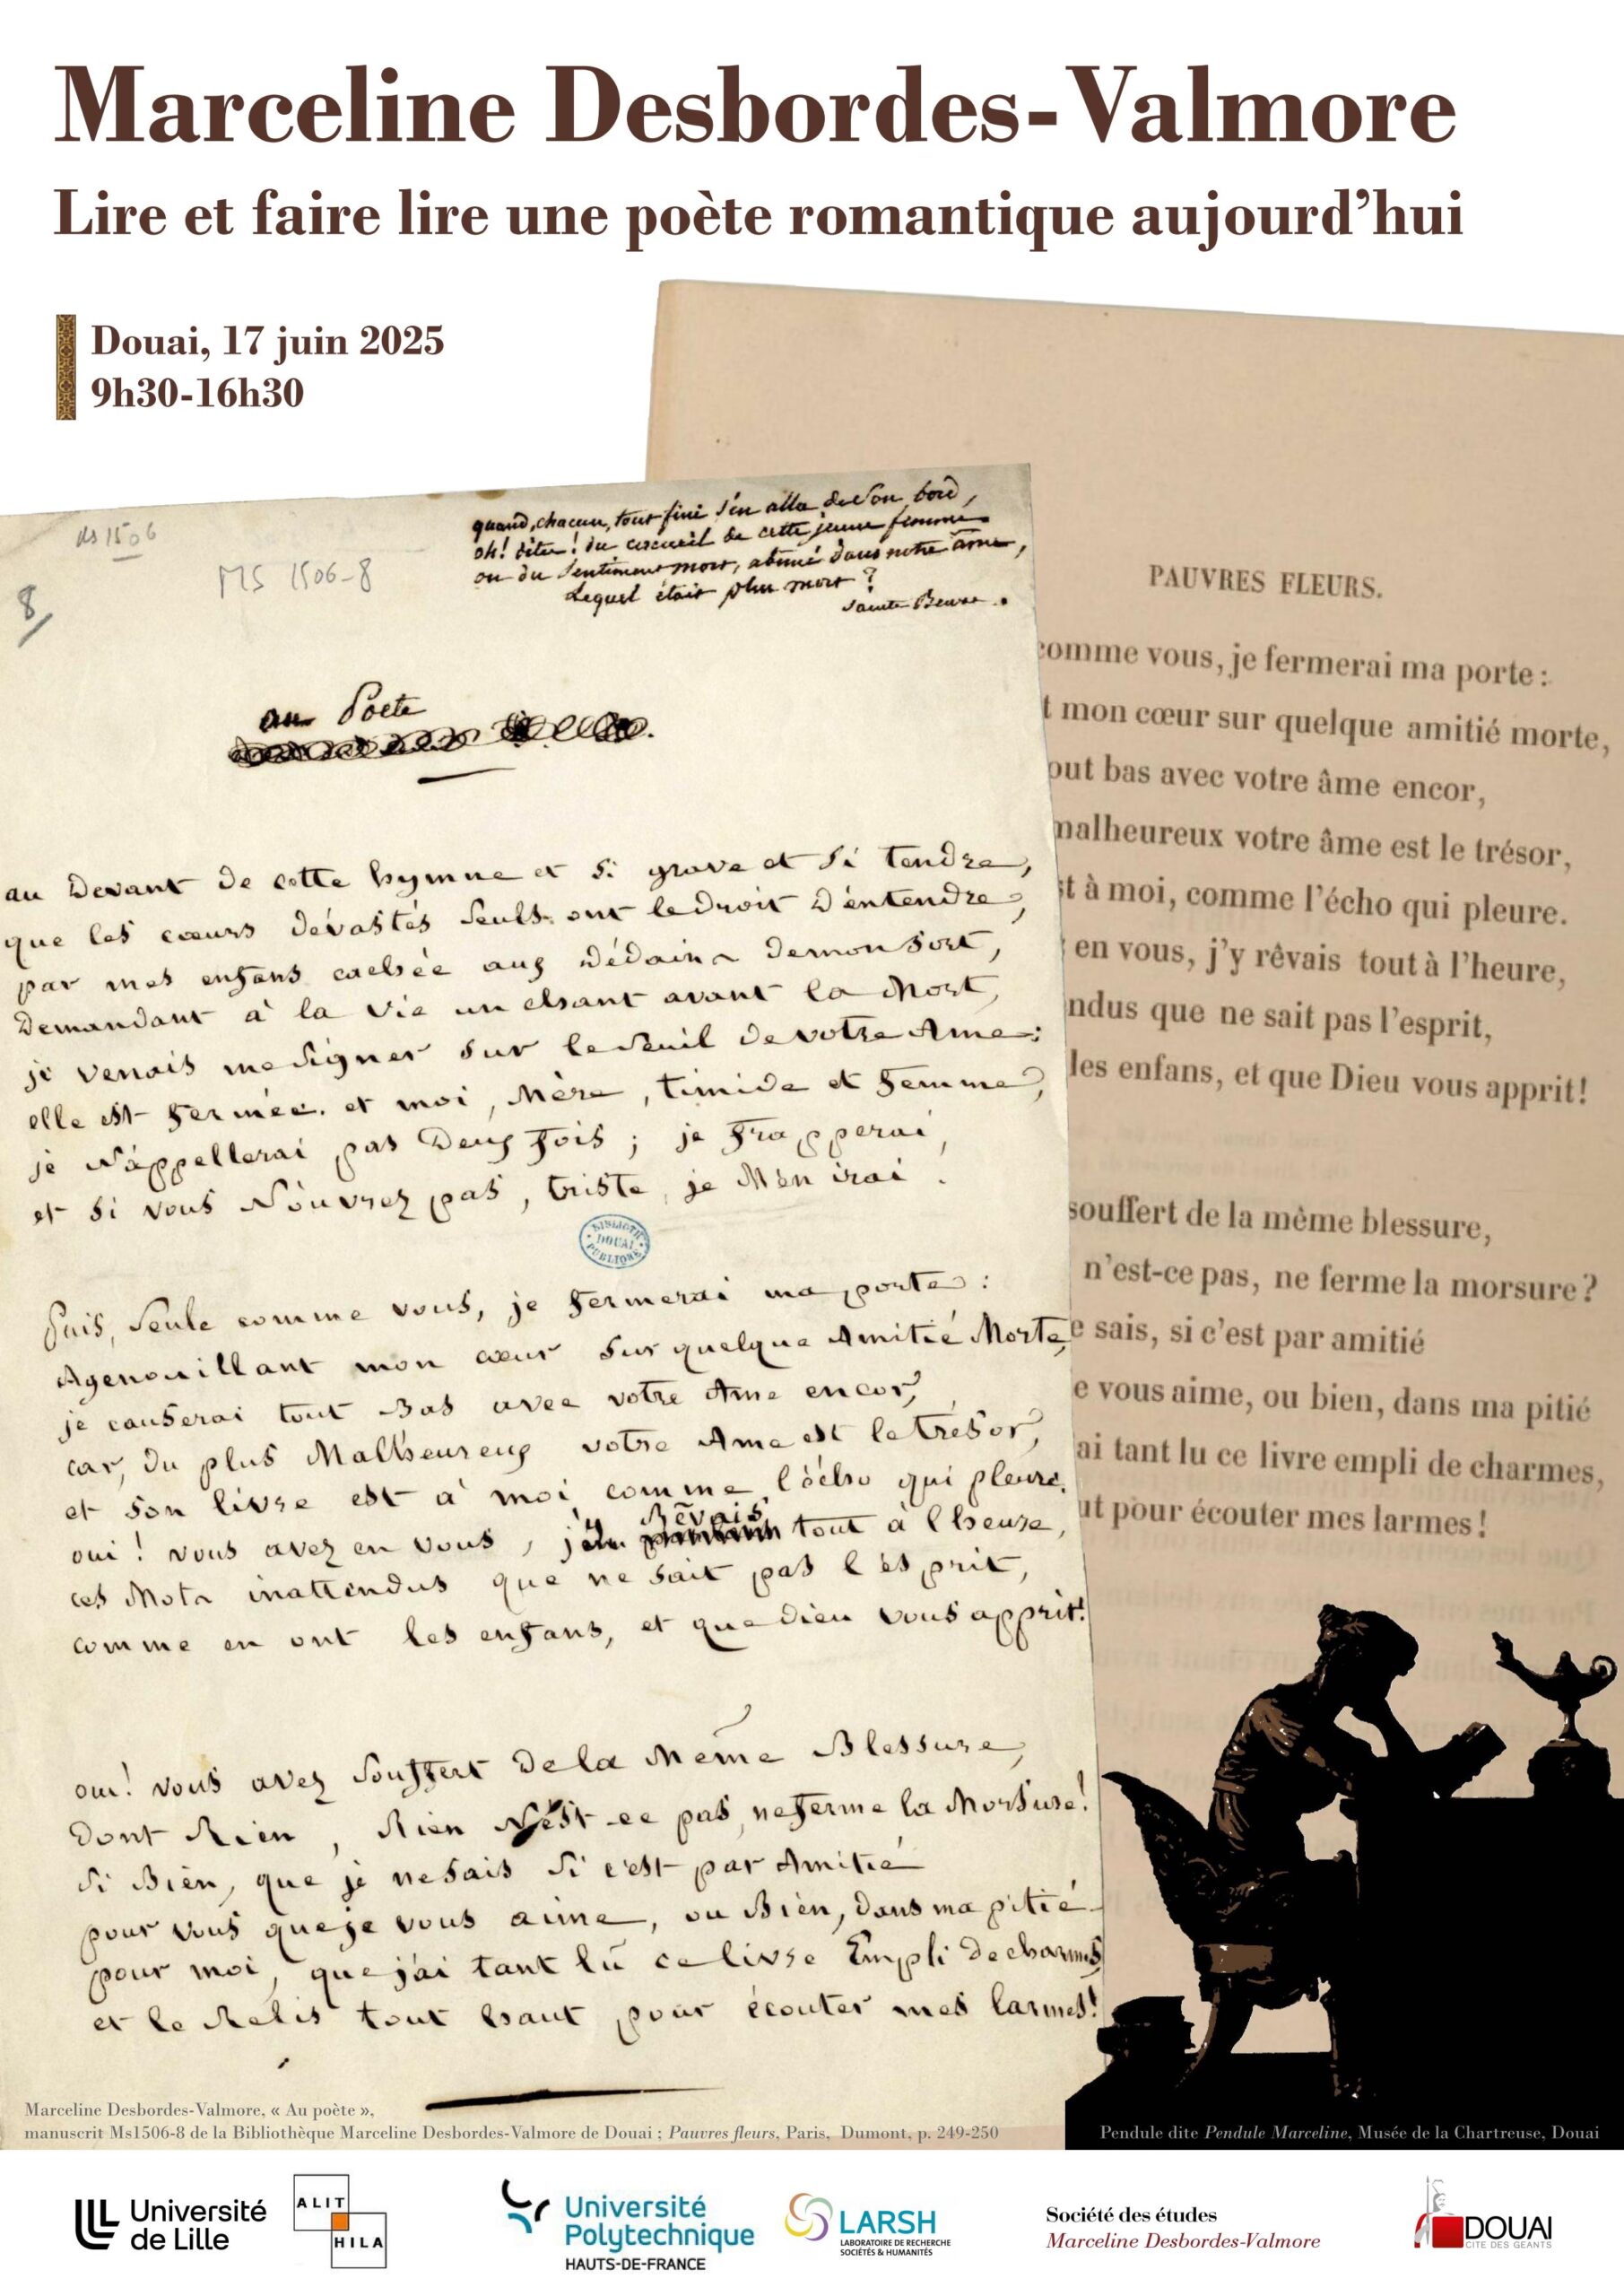 Marceline Desbordes-Valmore
Lire et faire lire une poète romantique aujourd'hui
Douai, 17 juin 2025
9h30-16h30
Ms 1506
MS 1506-8
8
quand, chacun, tout fini s'en alla de son bord,
oh! dites! du cercueil de cette jeune femme
ou du sentiment mort, abimé dans notre âme,
Lequel était plus mort ?
Sainte-Beuve.
au Poete
au Devant de cette hymne et si grave et si tendre,
que les cœurs dévastés seuls ont le droit d'entendre,
par mes enfans cachée aux Dédains de mon sort,
Demandant à la vie un chant avant la Mort,
je venais me signer sur le seuil de votre Ame:
elle est fermée. et moi, Mère, timide et femme,
je n'appellerai pas Deux fois ; je frapperai,
et si vous N'ouvrez pas, triste, je M'en irai.
BIBLIOTH.
DOUAI
PUBLIQUE
Puis, seule comme vous, je fermerai ma porte :
Agenouillant mon cœur sur quelque Amitié Morte,
je causerai tout Bas avec votre Ame encor,
car, du plus Malheureux votre Ame est le trésor,
et son livre est à moi comme l'écho qui pleure.
oui ! vous avez en vous, j'y Rêvais tout à l'heure,
ces Mots inattendus que ne sait pas l'esprit,
comme en ont les enfans, et que dieu vous apprit!
oui! vous avez souffert de la Même Blessure,
Dont Rien, Rien N'est-ce pas, ne ferme la Morsure!
Si Bien, que je ne sais si c'est par Amitié
pour vous que je vous aime, ou Bien, dans ma pitié
pour moi, que j'ai tant lu ce livre Empli de charmes
et le Relis tout haut pour écouter mes larmes!
PAUVRES FLEURS.
comme vous, je fermerai ma porte :
t mon cœur sur quelque amitié morte,
out bas avec votre âme encor,
malheureux votre âme est le trésor,
st à moi, comme l'écho qui pleure.
en vous, j'y rêvais tout à l'heure,
ndus que ne sait pas l'esprit,
les enfans, et que Dieu vous apprit!
souffert de la même blessure,
n'est-ce pas, ne ferme la morsure?
e sais, si c'est par amitié
e vous aime, ou bien, dans ma pitié
ai tant lu ce livre empli de charmes,
ut pour écouter mes larmes!
Marceline Desbordes-Valmore, « Au poète »,
manuscrit Ms1506-8 de la Bibliothèque Marceline Desbordes-Valmore de Douai ; Pauvres fleurs, Paris, Dumont, p. 249-250
Pendule dite Pendule Marceline, Musée de la Chartreuse, Douai
Université
de Lille
ALIT
HILA
Université
Polytechnique
HAUTS-DE-FRANCE
LARSH
LABORATOIRE DE RECHERCHE
SOCIÉTÉS & HUMANITÉS
Société des études
Marceline Desbordes-Valmore
DOUAI
CITE DES GEANTS